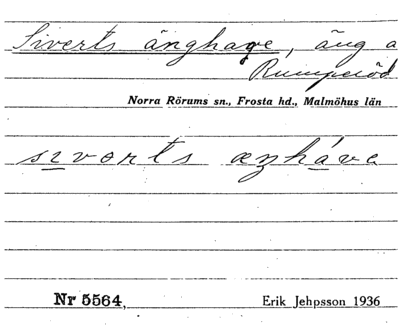 Siverts änghage, äng a
Rumperöd
Norra Rörums sn., Frosta hd., Malmöhus län
sivorts æŋháve
Nr 5564.
Erik Jehpsson 1936